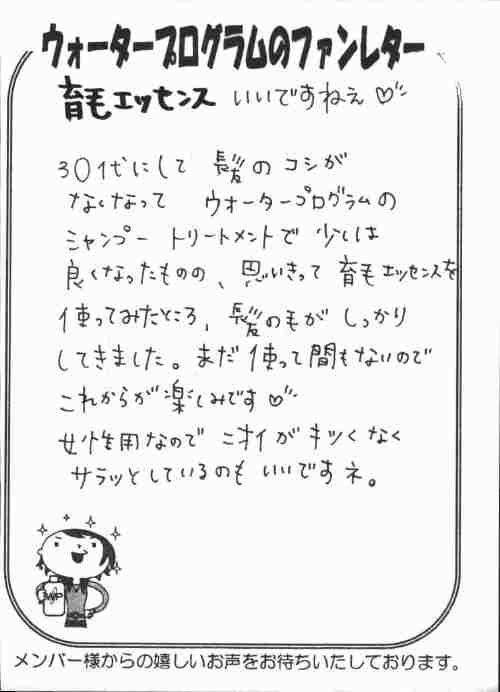 ウォータープログラムのファンレター
育毛エッセンス いいですねぇ♡
30代にして 髪のコシが
なくなって ウォータープログラムの
シャンプー トリートメントで 少しは
良くなったものの、思いきって 育毛エッセンスを
使ってみたところ、髪の毛が しっかり
してきました。まだ 使って間もないので
これからが楽しみです♡
女性用なので ニオイが キツくなく
サラッとしているのも いいですネ。
WP
メンバー様からの嬉しいお声をお待ちいたしております。